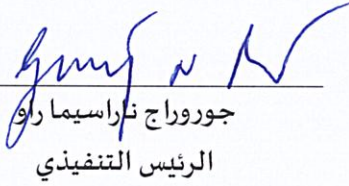 جوروراج ناراسيما راو
الرئيس التنفيذي